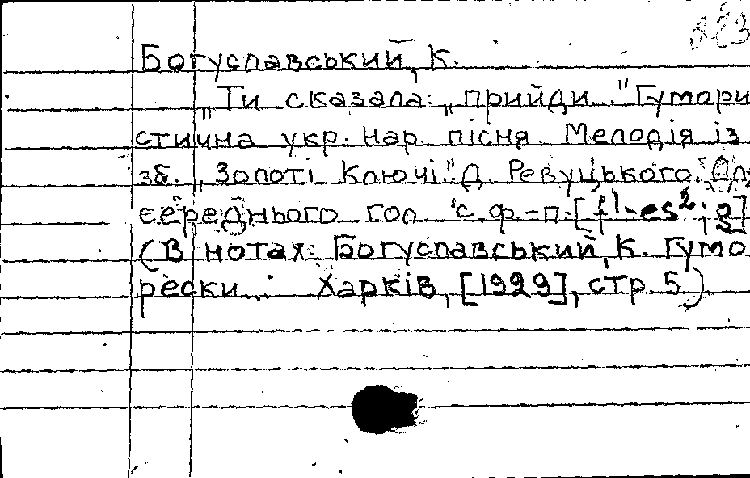 Богуславський, К.
„Ти сказала: „прийди." Гумори
стична укр. нар. пісня Мелодія із
зб. „Золоті Ключі" Д. Ревуцького. Для
середнього гол с. ф.-п. [f¹-es²;
(В нотах: Богуславський, К. Гумо
рески. Харків, [1929], стр. 5)